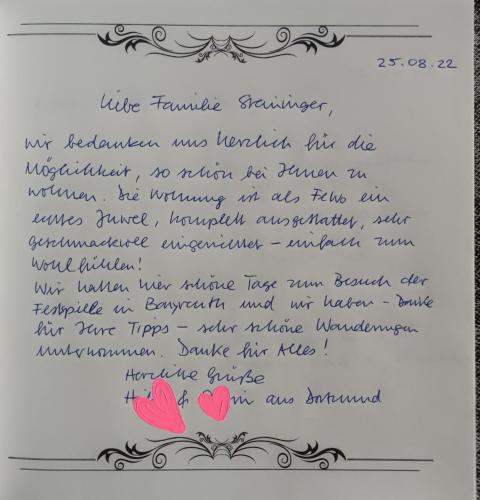 25.08.22
Liebe Familie Steininger,
wir bedanken uns herzlich für die
Möglichkeit, so schön bei Ihnen zu
wohnen. Die Wohnung ist als FeWo ein
echtes Juwel, komplett ausgestattet, sehr
geschmackvoll eingerichtet – einfach zum
Wohlfühlen!
Wir hatten hier schöne Tage zum Besuch der
Festspiele in Bayreuth und wir haben – Danke
für Ihre Tipps – sehr schöne Wanderungen
unternommen. Danke für Alles!
Herzliche Grüße
& aus Dortmund